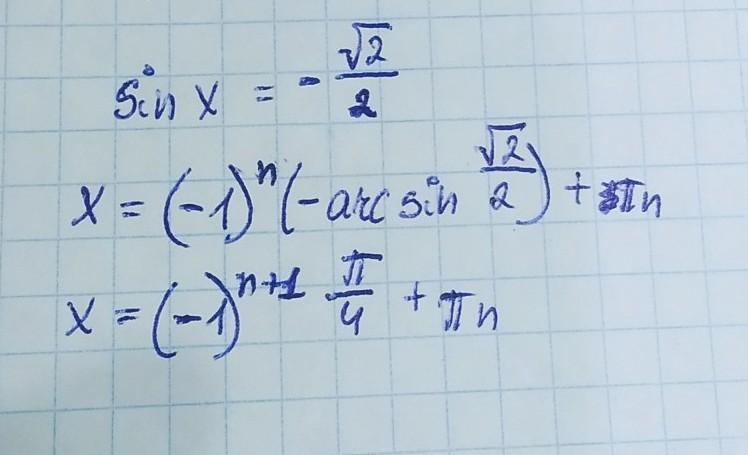 sin x = - √2/2
x = (-1)^n (-arcsin √2/2) + πn
x = (-1)^{n+1} π/4 + πn